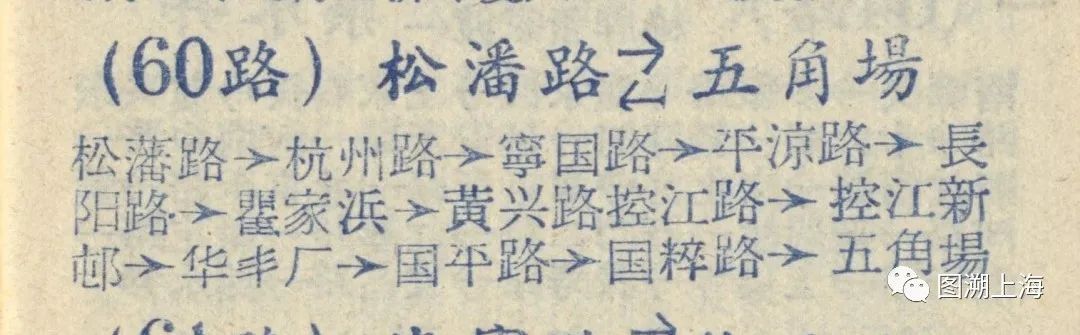 (60路) 松潘路⇄五角場
松藩路→杭州路→寧国路→平凉路→長
阳路→瞿家浜→黄兴路控江路→控江新
邨→华丰厂→国平路→国粹路→五角場
图溯上海